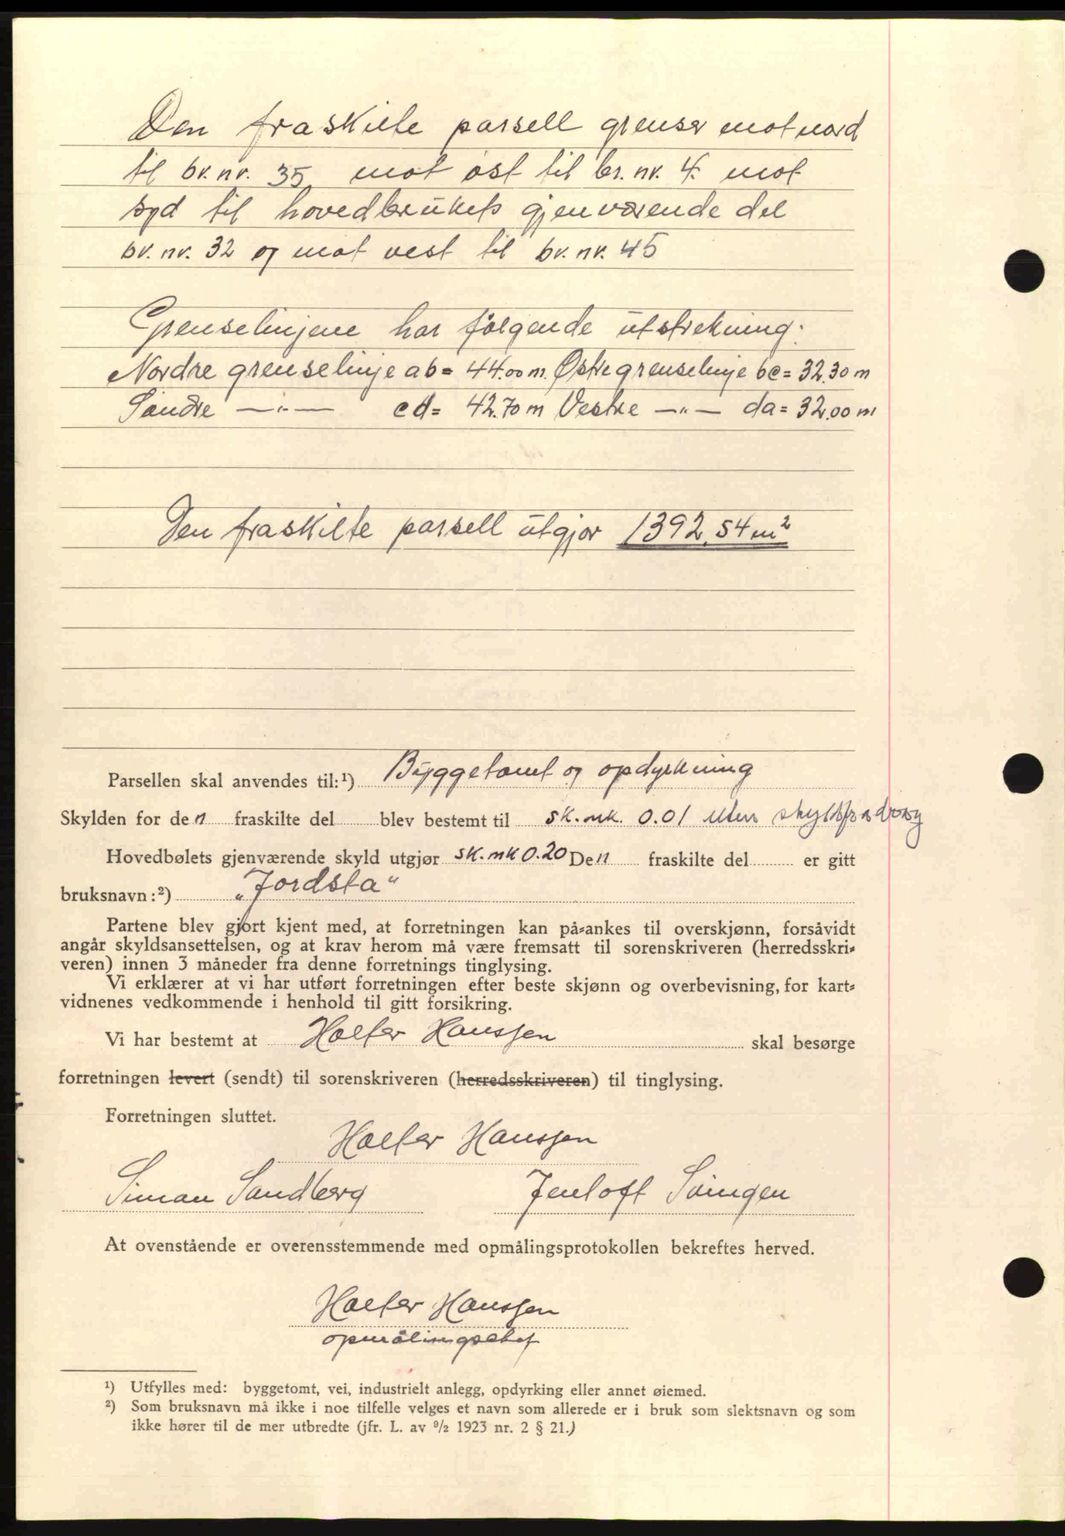 Den fraskilte parsell grenser mot nord
til br. nr. 35 mot øst til br. nr. 4. mot
syd til hovedbrukets gjenværende del
br. nr. 32 og mot vest til br. nr. 45
Grenselinjene har følgende utstrekning:
Nordre grenselinje ab= 44.00 m. Østre grenselinje bc= 32.30 m
Søndre —"— cd= 42.70 m Vestre —"— da= 32.00 m
Den fraskilte parsell utgjør 1392,54 m²
Parsellen skal anvendes til:¹) Byggetomt og opdyrkning
Skylden for den fraskilte del blev bestemt til sk.mk. 0.01 uten skyldfradrag
Hovedbølets gjenværende skyld utgjør sk.mk 0.20 Den fraskilte del er gitt
bruksnavn:²) "Jordsta"
Partene blev gjort kjent med, at forretningen kan på=ankes til overskjønn, forsåvidt
angår skyldsansettelsen, og at krav herom må være fremsatt til sorenskriveren (herredsskri=
veren) innen 3 måneder fra denne forretnings tinglysing.
Vi erklærer at vi har utført forretningen efter beste skjønn og overbevisning, for kart=
vidnenes vedkommende i henhold til gitt forsikring.
Vi har bestemt at Holter Hanssen skal besørge
forretningen levert (sendt) til sorenskriveren (herredsskriveren) til tinglysing.
Forretningen sluttet.
Holter Hanssen
Simon Sandberg Jentoft Svingen
At ovenstående er overensstemmende med opmålingsprotokollen bekreftes herved.
Holter Hanssen
opmålingschef
¹) Utfylles med: byggetomt, vei, industrielt anlegg, opdyrking eller annet øiemed.
²) Som bruksnavn må ikke i noe tilfelle velges et navn som allerede er i bruk som slektsnavn og som
ikke hører til de mer utbredte (jfr. L. av ⁹/₂ 1923 nr. 2 § 21.)